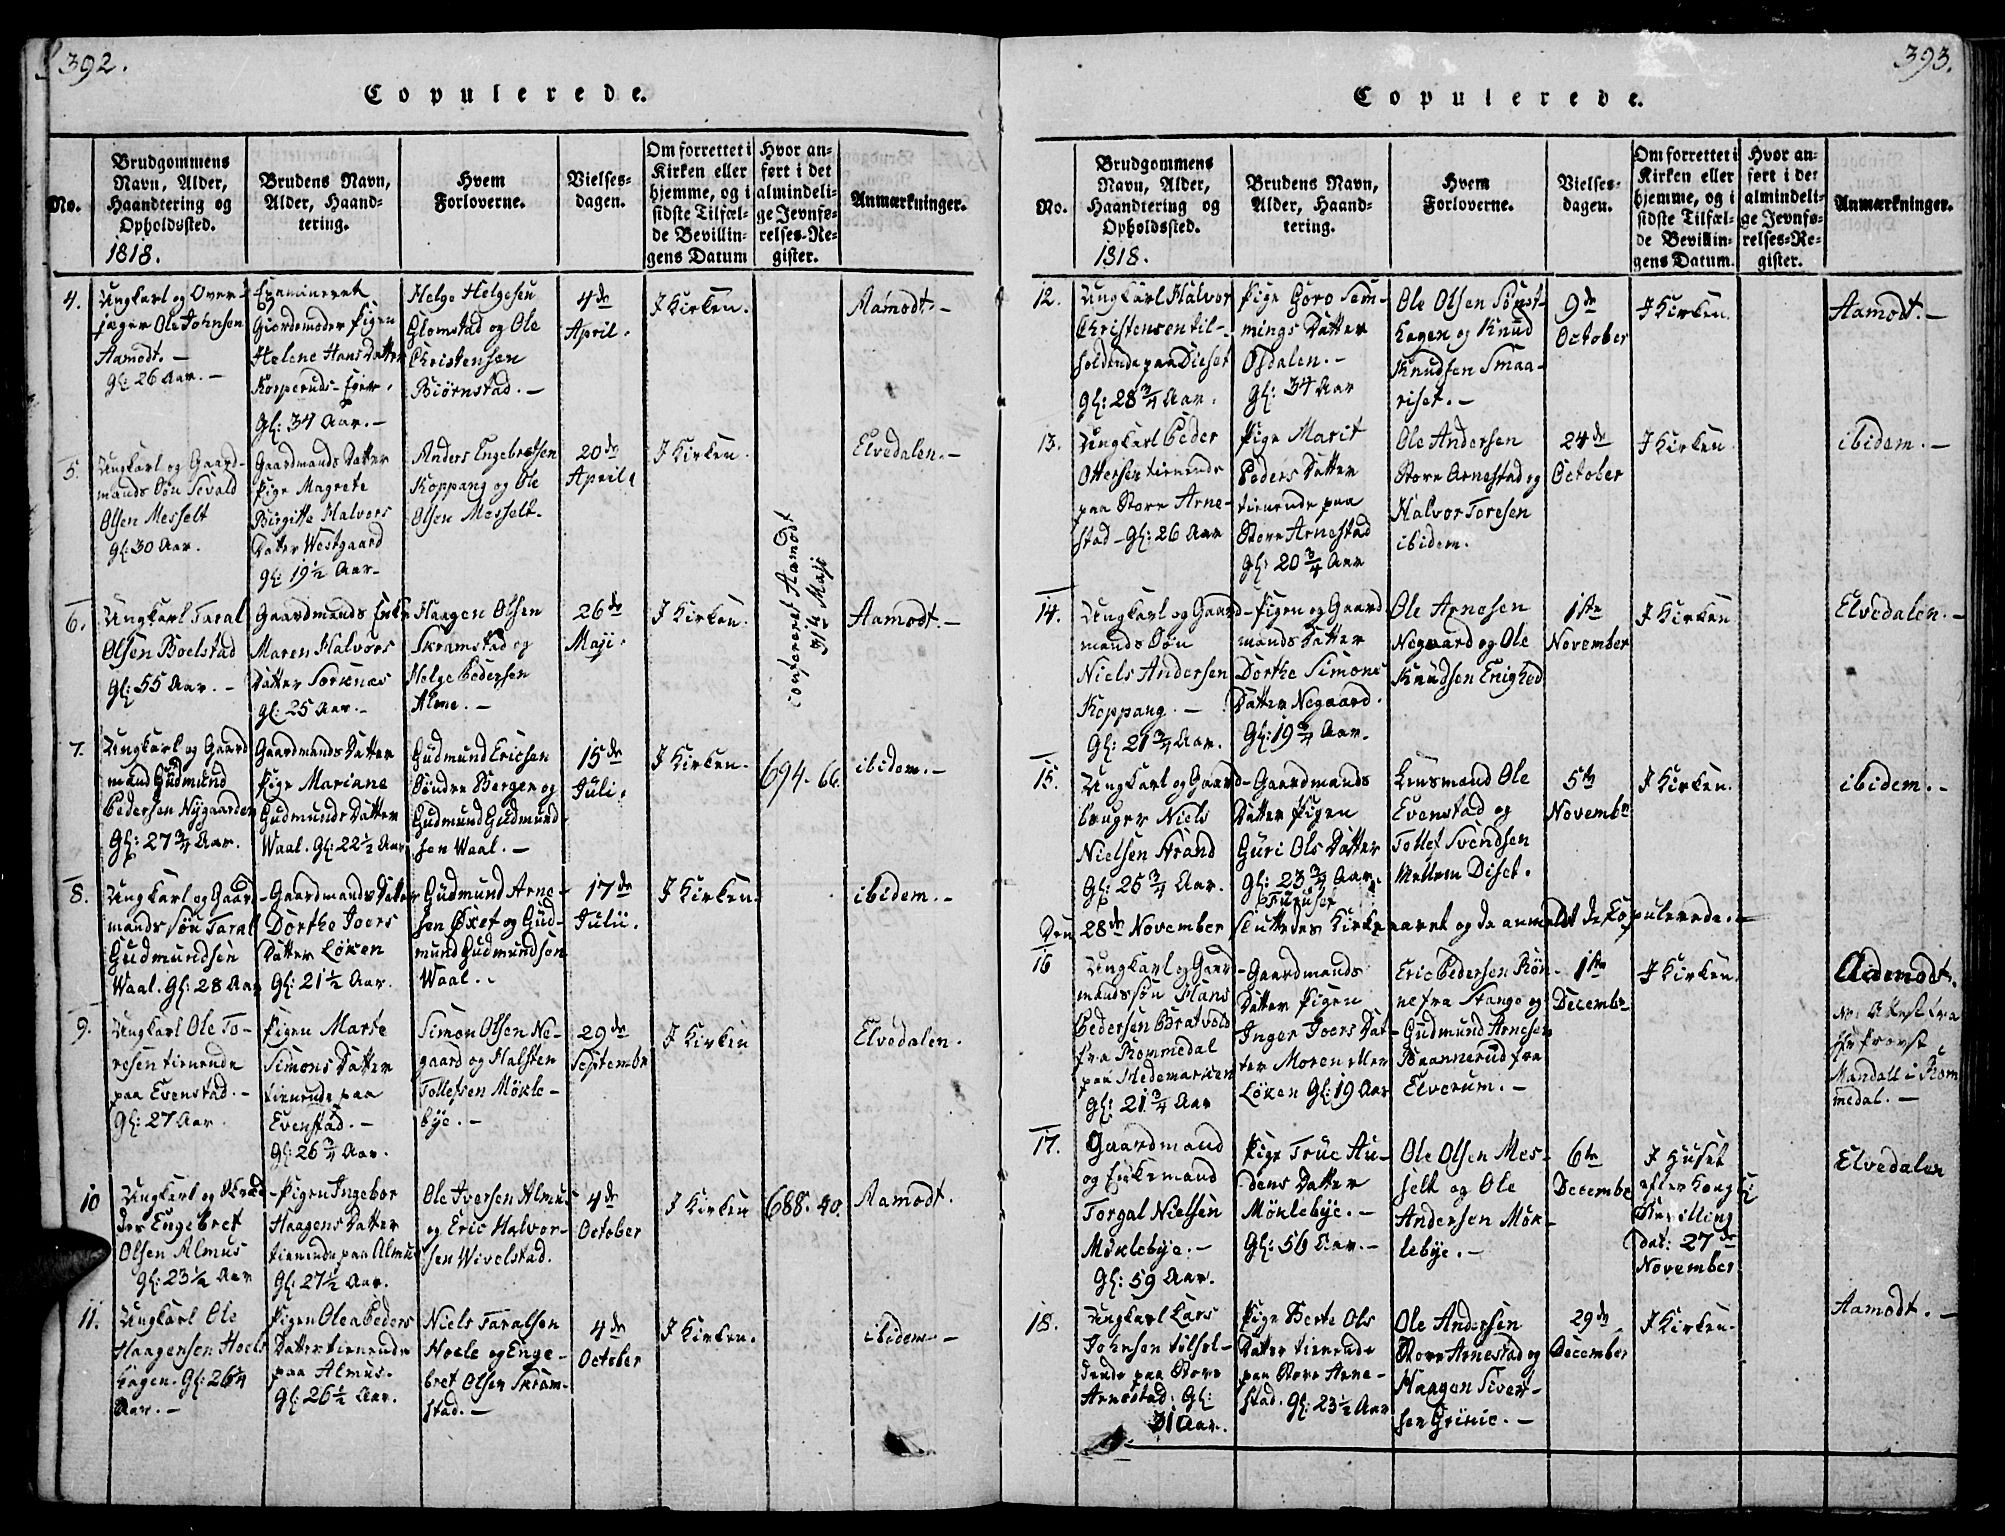 392.
Copulerede.
No.
Brudgommens
Navn, Alder,
Haandtering og
Opholdssted.
1818.
Brudens Navn,
Alder, Haand-
tering.
Hvem
Forloverne.
Vielses-
dagen.
Om forrettet i
Kirken eller
hjemme, og i
sidste Tilfæl-
de Bevillin-
gens Datum
Hvor an-
ført i det
almindeli-
ge Jevnfø-
relses-Re-
gister.
Anmærkninger.
4.
Ungkarl og Over-
jæger Ole Johnsen
Aamodt. -
Gl: 26 Aar. -
Examineret
Giordemoder Pigen
Helene Hans Datter
Kopperuds-Eier.
Gl: 34 Aar. -
Helge Helgesen
Glomstad og Ole
Christensen
Biørnstad. -
4de
April.
I Kirken.
Aamodt. -
5.
Ungkarl og Gaard-
mands Søn Sevald
Olsen Messelt
gl: 30 Aar.
Gaardmands Datter
Pige Magrete
Birgitte Halvors
Datter Westgaard
gl: 19½ Aar -
Anders Engebretsen
Koppang og Ole
Olsen Messelt.
20de
April.
I Kirken.
Elvedalen. -
6.
Ungkarl Taral
Olsen Boelstad
gl: 55 Aar. -
Gaardmands Enke
Maren Halvors
Datter Sorknæs
gl: 25 Aar. -
Haagen Olsen
Skramstad og
Helge Pedersen
Alme. -
26de
Maji.
I Kirken.
confereret Aamodt
Maji
Aamodt. -
7.
Ungkarl og Gaard
mand Gudmund
Pedersen Nygaarden
Gl: 27¾ Aar.
Gaardmands Datter
Pige Mariane
Gudmunds Datter
Waal. Gl: 22½ Aar
Gudmund Ericsen
Søndre Berger og
Gudmund Gudmund-
sen Waal. -
15de
Juli.
I Kirken.
694. 66.
ibidem. -
8.
Ungkarl og Gaard
mands søn Taral
Gudmundsen
Waal. Gl: 28 Aar
Gaardmands Datter
Dorthe Joers
Datter Løken
Gl: 21½ Aar.
Gudmund Arne-
sen Øxet og Gud-
mund Gudmundsen
Waal. -
17de
Julii.
I Kirken.
ibidem. -
9.
Ungkarl Ole To-
resen tienende
paa Evenstad. -
Gl: 27 Aar.
Pigen Marte
Simons Datter
tienende paa
Evenstad. -
Gl: 26¾ Aar.
Simon Olsen Ne-
gaard og Halsten
Tollefsen Møkle-
bye. -
29de
Septembr
I Kirken
Elvedalen.
10
Ungkarl og
der Engebret
Olsen Almus
gl: 23½ Aar
Pigen Ingebor
Haagens Datter
tienende paa Almus
Gl: 27½ Aar.
Ole Iversen Almus
og Eric Halvor-
sen Wivelstad.
4de
October
I Kirken
688. 40.
Aamodt.
11.
Ungkarl Ole
Haagensen Hoels
hagen. Gl: 26¼
Aar. -
Pigen Olea Peders
Datter tienende
paa Almus.
Gl: 26½ Aar.
Niels Taralsen
Hoele og Enge-
bret Olsen Skram-
stad. -
4de
October
I Kirken.
ibidem. -
393.
Copulerede.
No.
Brudgommens
Navn, Alder,
Haandtering og
Opholdssted.
1818.
Brudens Navn,
Alder, Haand-
tering.
Hvem
Forloverne.
Vielses-
dagen.
Om forrettet i
Kirken eller
hjemme, og i
sidste Tilfæl-
de Bevillin-
gens Datum.
Hvor an-
ført i det
almindeli-
ge Jevnfø-
relses-Re-
gister.
Anmærkninger.
12.
Ungkarl Halvor
Christensen til-
holdende paa Dieset
gl: 28¾ Aar.
Pige Goro Sem-
mings Datter
Osdalen. -
gl: 34 Aar
Ole Olsen
hagen og Knud
Knudsen Smaa-
riset. -
9de
October
I Kirken.
Aamodt. -
13.
Ungkarl Peder
Ottersen tienende
paa Store Arne-
stad - Gl: 26 Aar
Pige Marit
Peders Datter
tienende paa
Store Arnestad
gl: 20¾ Aar
Ole Andersen
Store Arnestad og
Halvor Toresen
ibidem.
24de
October
I Kirken.
ibidem. -
14.
Ungkarl og Gaard
mands Søn
Niels Andersen
Koppang. -
Gl: 21¾ Aar.
Pigen og Gaard
mands Datter
Dorthe Simons
Datter Negaard.
Gl: 19¾ Aar.
Ole Arnesen
Negaard og Ole
Knudsen Enighed
1ste
November
I Kirken
Elvedalen. -
15.
Ungkarl og Gaard-
bruger Niels
Nielsen Strand
Gl: 25¾ Aar.
Gaardmands
Datter Pigen
Guri Ols Datter
Gl: 23¾ Aar.
Furuset
Lensmand Ole
Evenstad og
Tollef Svendsen
Mellem Diset.
5te
Novembr
I Kirken.
ibidem. -
Den 28de November sluttedes Kirkeaaret og da anmeldt de Copulerede. -
16
Ungkarl og Gaard
mandssøn Hans
Pedersen Bratvold
fra Rommedal
paa Hedemarken
gl: 21¾ Aar
Gaardmands
Datter Pigen
Inger Joers Dat-
ter Moren eller
Løken Gl: 19 Aar
Eric Pedersen Røn-
ne fra Stange og
Gudmund Arnesen
Braanerud fra
Elverum. -
1ste
Decembr
I Kirken.
Aamodt.
Attest fra
Hr Provst
Mandall i Rom
medal. -
17.
Gaardmand
og Enkemand
Torgal Nielsen
Møklebye. -
Gl: 59 Aar.
Pige True Au-
dens Datter
Møklebye. -
Gl: 56 Aar. -
Ole Olsen Mes-
selt og Ole
Andersen Møk-
lebye. -
6te
Decembr
I Huset
efter Kongl
Bevilling
dat: 27de
November
Elvedalen
18.
Ungkarl Lars
Johnsen tilhol-
dende paa Store
Arnestad. Gl:
31 Aar.
Pige Berte Ols
Datter tienende
paa Store Arne-
stad. Gl: 23½ Aar
Ole Andersen
Store Arnestad og
Haagen Siver-
sen Grønie. -
29de
December
I Kirken.
Aamodt. -